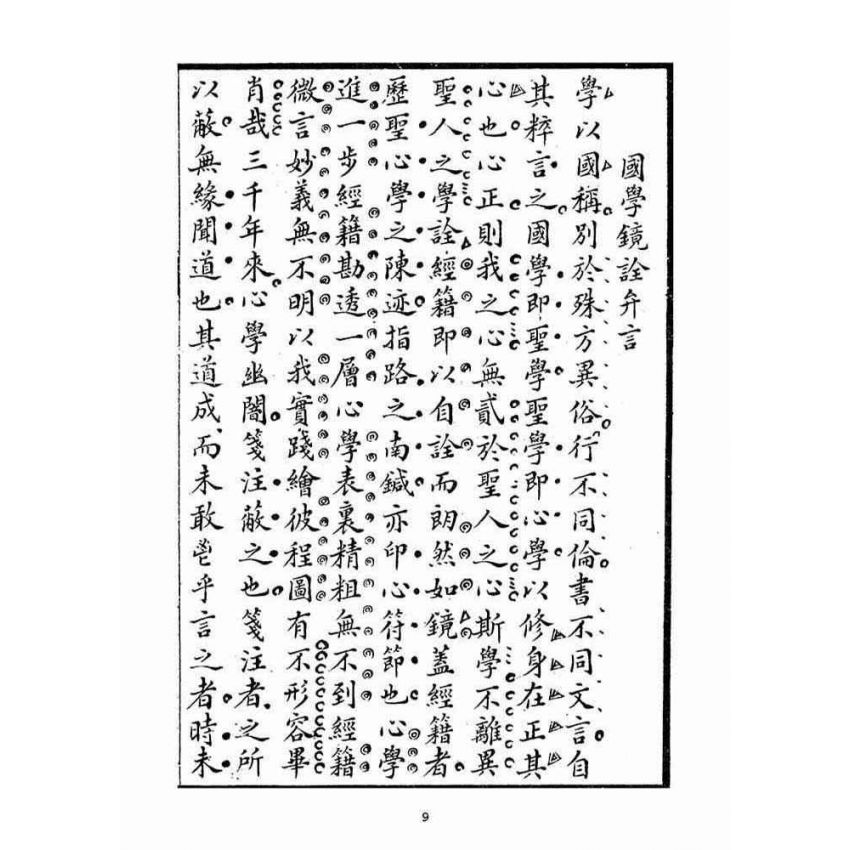 國學鏡詮弁言
學以國稱別於殊方異俗行不同倫書不同文言自
其粹言之國學即聖學聖學即心學以修身在正其
心也心正則我之心無貳於聖人之心斯學不離異
聖人之學詮經籍即以自詮而朗然如鏡蓋經籍者
歷聖心學之陳迹指路之南鍼亦印心符節也心學
進一步經籍勘透一層心學表裏精粗無不到經籍
微言妙義無不明以我實踐繪彼程圖有不形容畢
肖哉三千年來心學幽闇箋注蔽之也箋注者之所
以蔽無緣聞道也其道成而未敢邑乎言之者時未
9